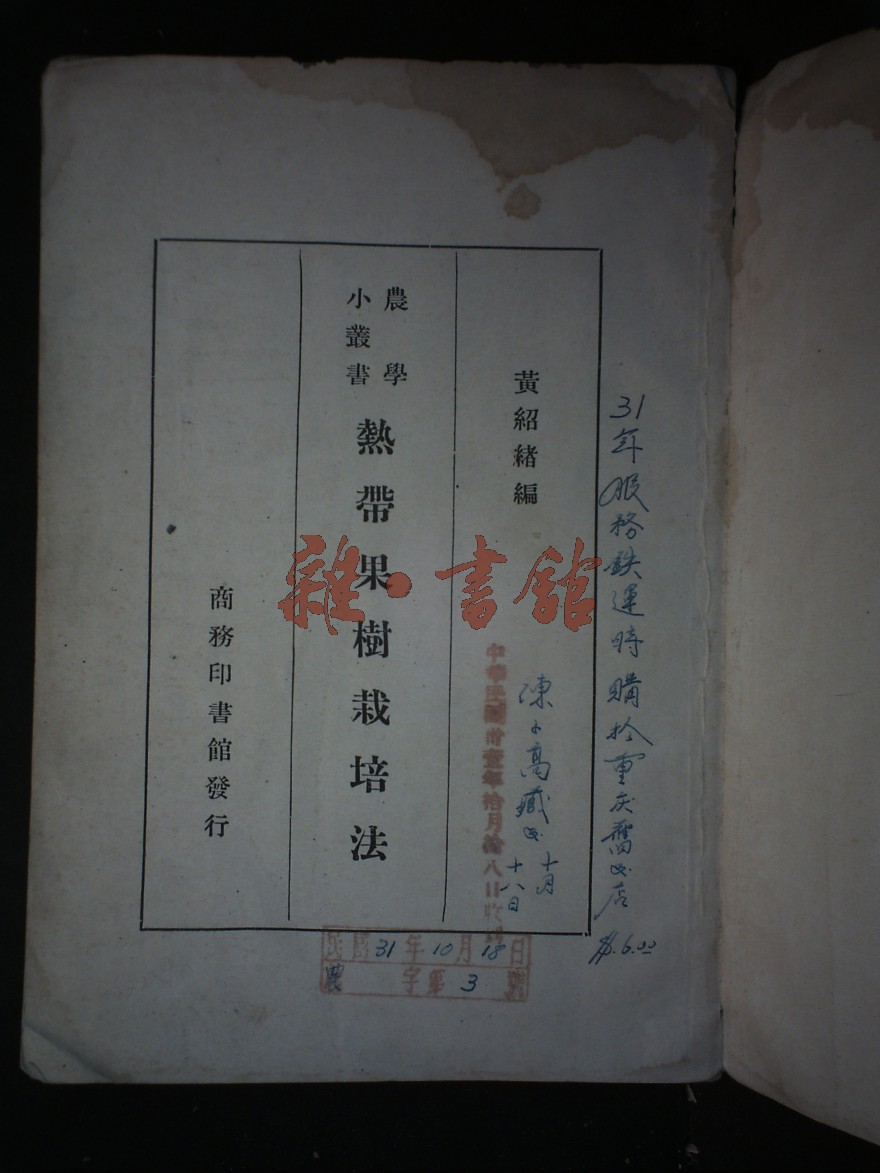 31年服務鉄運時購於重庆舊书店 $6.00
黃紹緒編
高藏书
十月
十八日
中華民國卅壹年拾月拾八日收到
農學
小叢書
熱帶果樹栽培法
商務印書館發行
雜·書館
民國31年10月18日
農字第3號